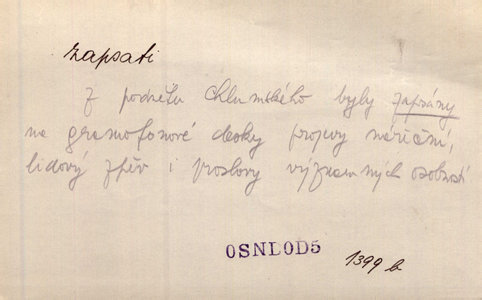 zapsati
Z podnětu Chlumského byly zapsány
na gramofonové desky projevy nářeční,
lidový zpěv i proslovy význačných osobností
OSNLOD5
1399 b